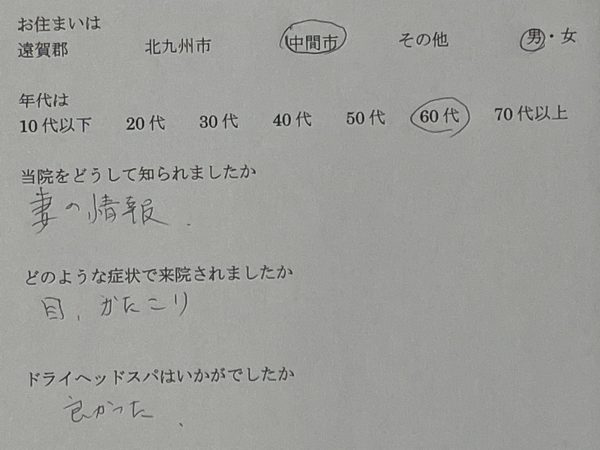 お住まいは
遠賀郡 北九州市 中間市 その他 男・女
年代は
10代以下 20代 30代 40代 50代 60代 70代以上
当院をどうして知られましたか
妻の情報.
どのような症状で来院されましたか
目、かたこり
ドライヘッドスパはいかがでしたか
良かった.